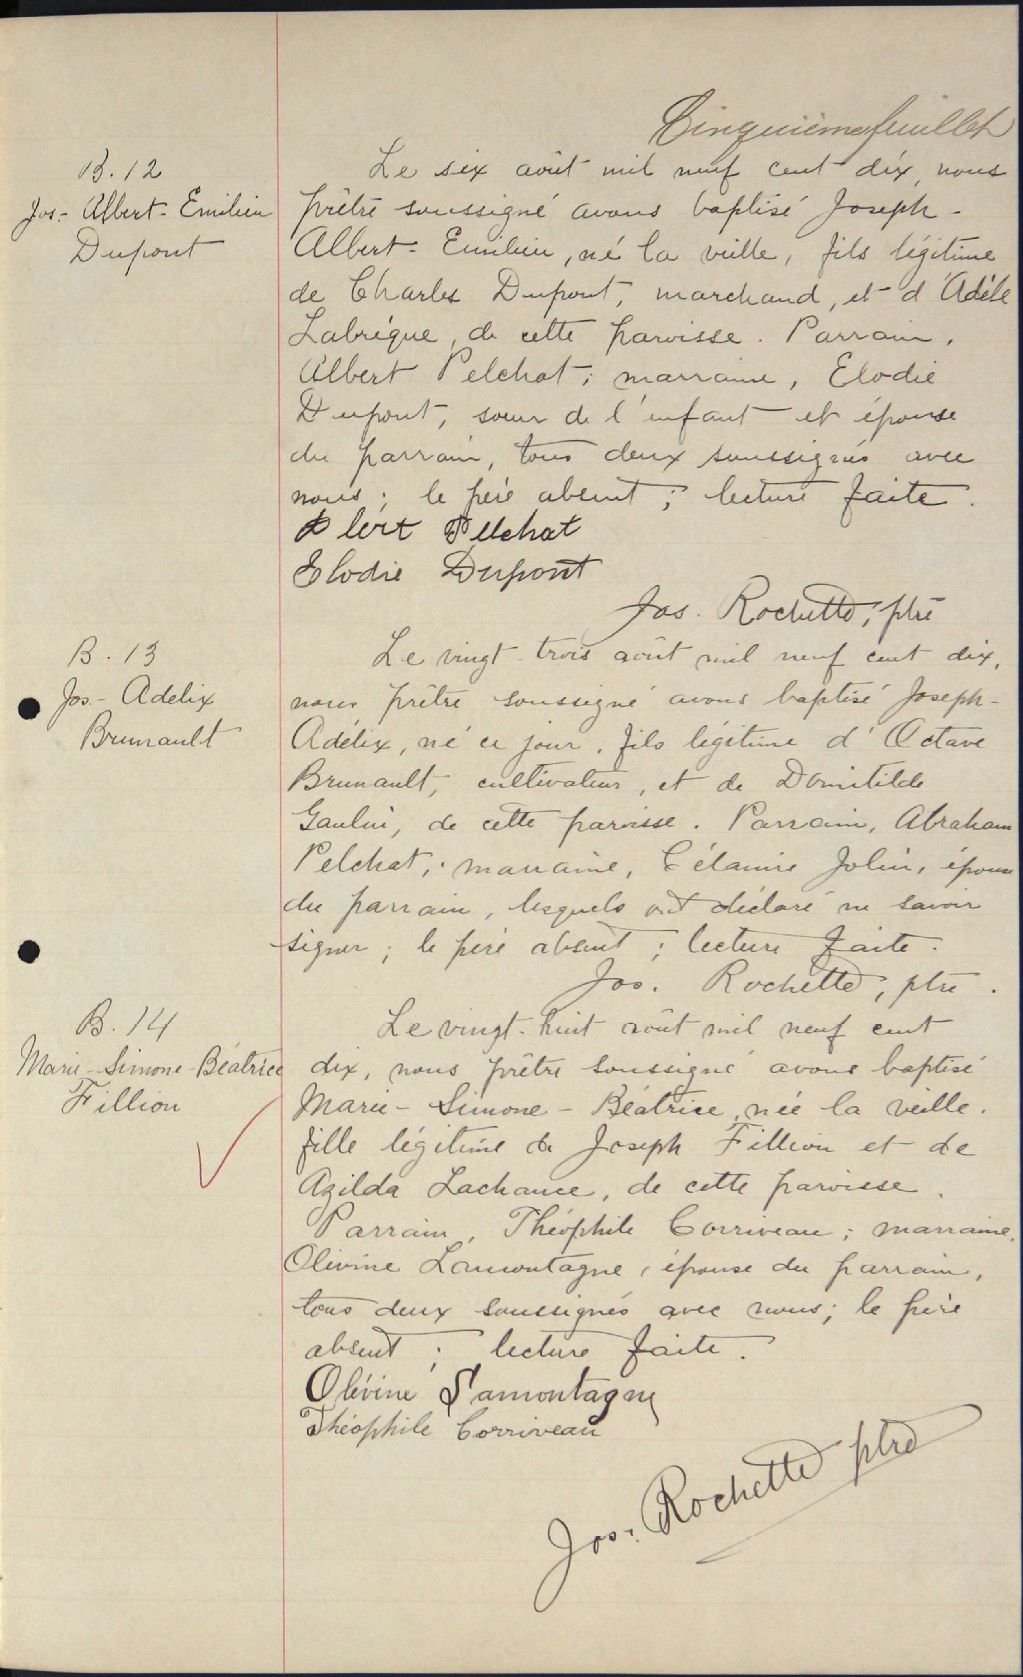 Cinquième feuillet
B. 12
Jos.- Albert- Emilien
Dupont
Le six août mil neuf cent dix, nous
prêtre soussigné avons baptisé Joseph-
Albert- Emilien, né la veille, fils légitime
de Charles Dupont, marchand, et d'Adèle
Labrèque, de cette paroisse. Parrain,
Albert Pelchat; marraine, Elodie
Dupont, soeur de l'enfant et épouse
du parrain, tous deux soussignés avec
nous; le père absent; lecture faite.
Pelchat
Elodie Dupont
Jos. Rochette, ptre
B. 13
Jos.- Adelix
Brunault
Le vingt-trois août mil neuf cent dix,
nous prêtre soussigné avons baptisé Joseph-
Adélix, né ce jour, fils légitime d'Octave
Brunault, cultivateur, et de Domitilde
Gaulin, de cette paroisse. Parrain, Abraham
Pelchat; marraine, Célamire Jolin, épouse
du parrain, lesquels ont déclaré ne savoir
signer; le père absent; lecture faite.
Jos. Rochette, ptre.
B. 14
Marie-Simone-Béatrice
Fillion
Le vingt-huit août mil neuf cent
dix, nous prêtre soussigné avons baptisé
Marie-Simone-Béatrice, née la veille,
fille légitime de Joseph Fillion et de
Azilda Lachance, de cette paroisse.
Parrain, Théophile Corriveau; marraine,
Olivine Lamontagne, épouse du parrain,
tous deux soussignés avec nous; le père
absent; lecture faite.
Olévine Lamontagne
Théophile Corriveau
Jos. Rochette ptre